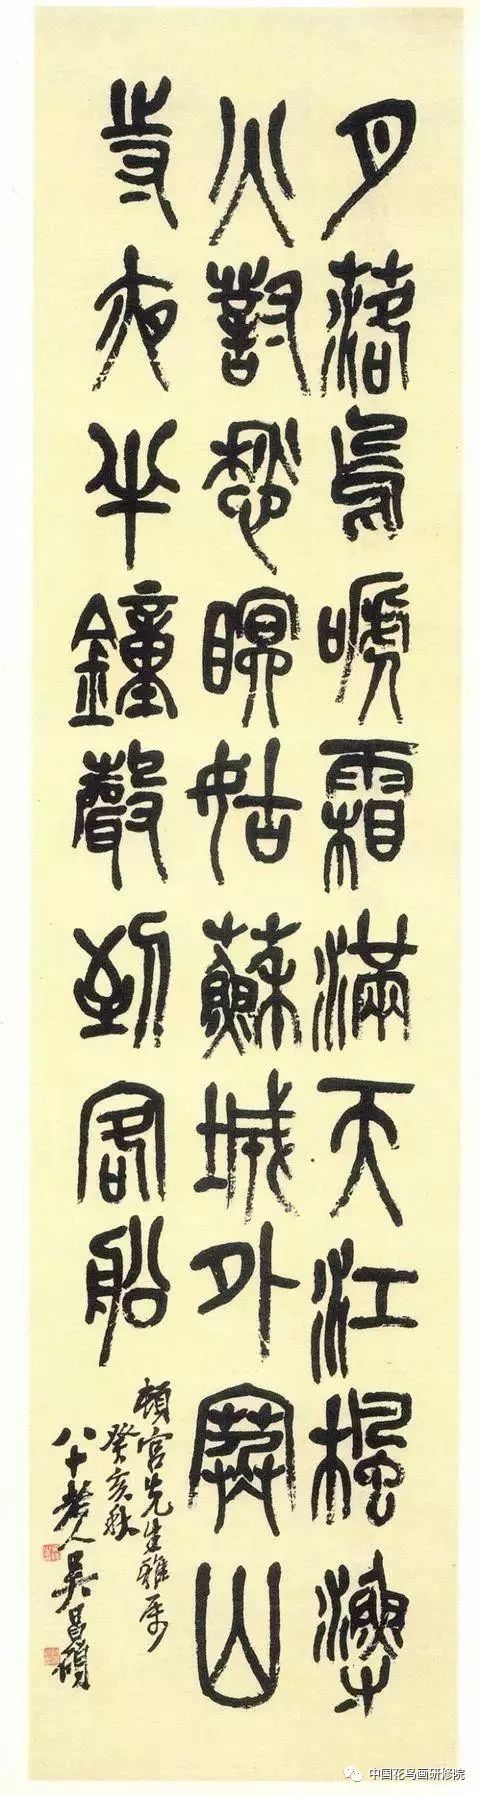 月落烏嗁霜滿天江楓漁
火對愁瞑姑蘇城外寒山
寺夜半鐘聲到客船
頓宮先生雅屬
癸亥秋
八十老人吳昌碩
中国花鸟画研修院